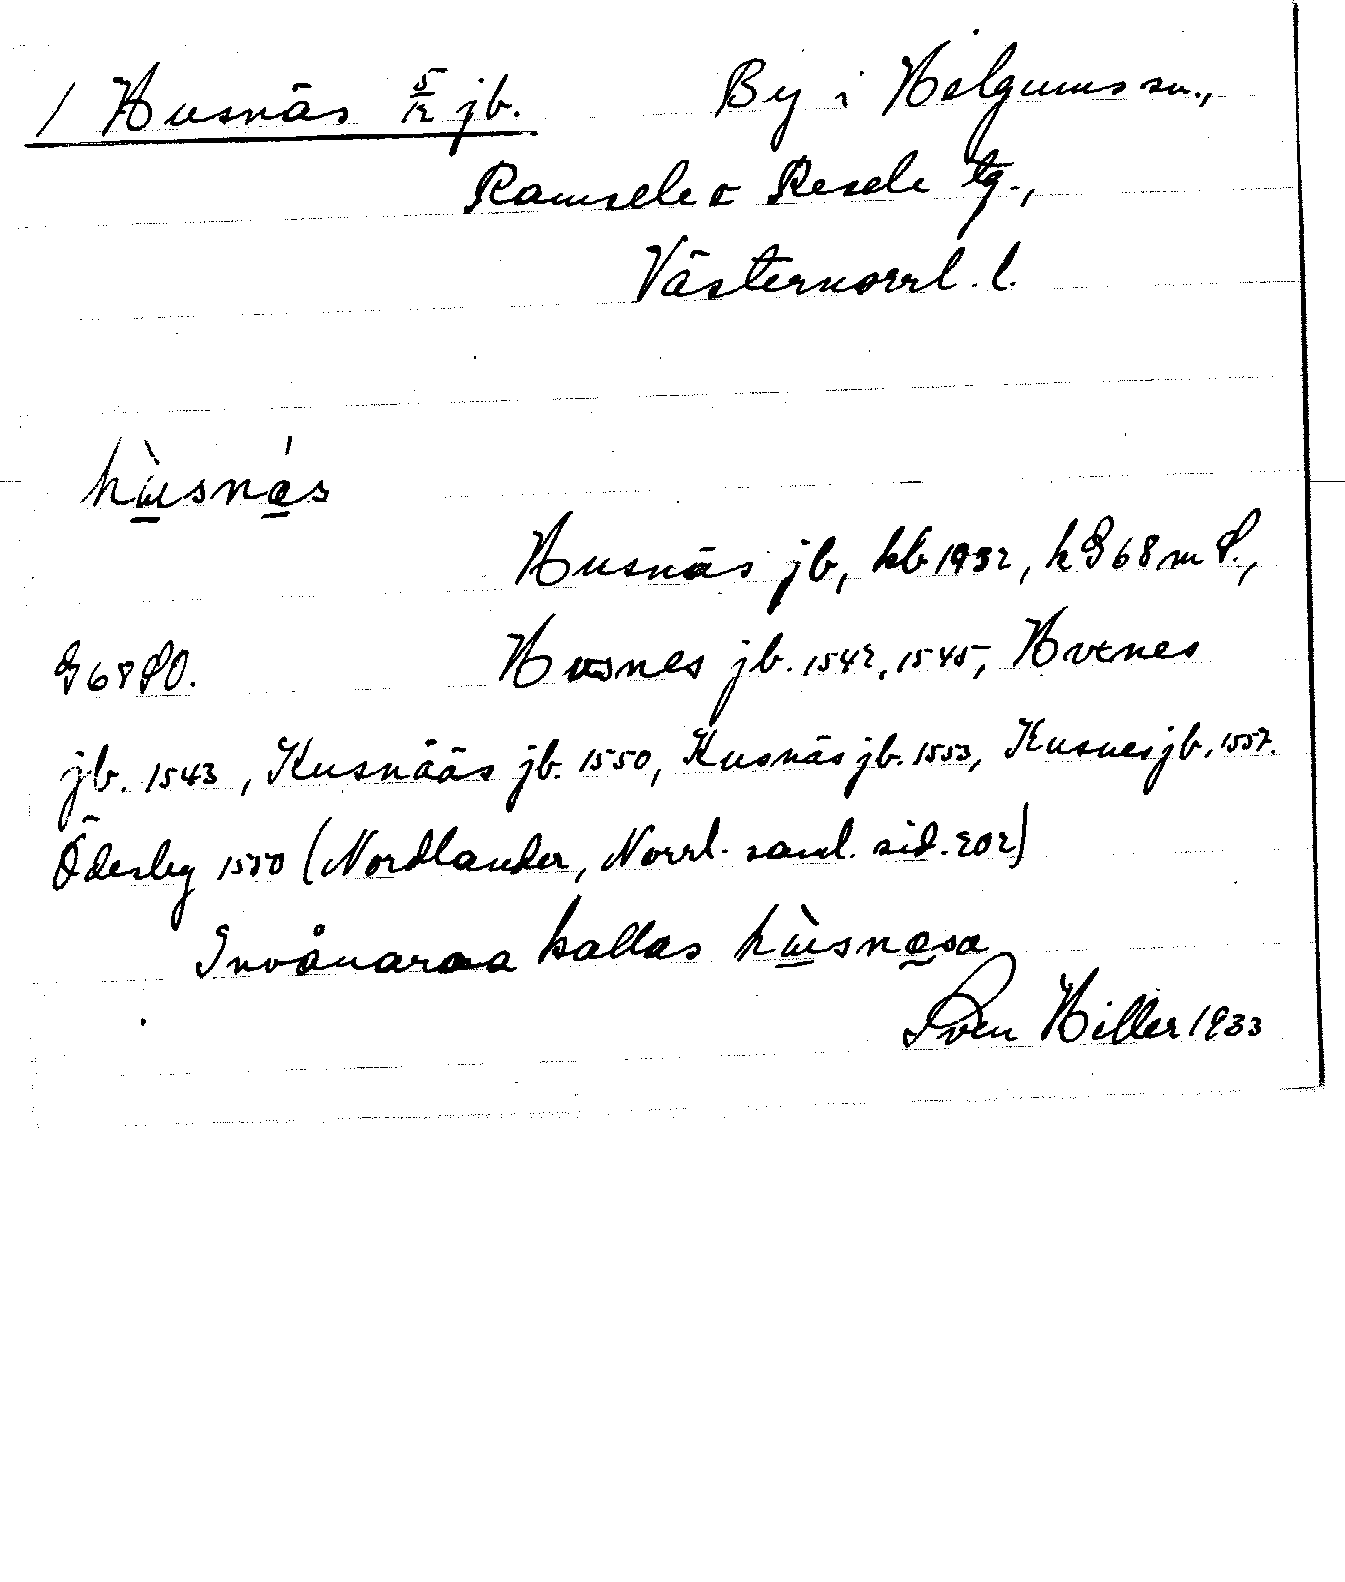 1 Husnäs 5/12 jb. By i Helgums sn.,
Ramsele o Resele tg.,
Västernorrl. l.
hùsnás
Husnäs jb, kb 1932, k G68 m S.,
G68 SO. Husnes jb. 1542, 1545, Hvsnes
jb. 1543, Husnääs jb. 1550, Husnäs jb. 1553, Husnes jb. 1557.
Ödesby 1550 (Nordlander, Norrl. saml. sid. 202)
Invånarna kallas hùsnasa
Sven Hiller 1933